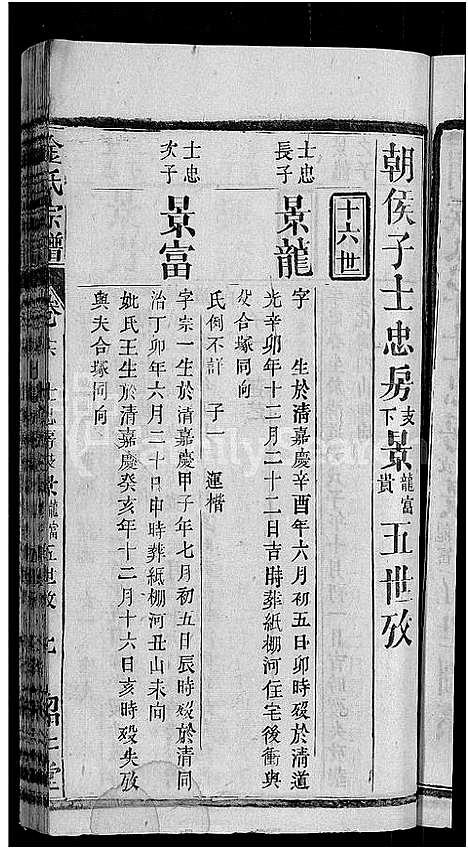 朝侯子士忠房支下景龍富貴五世攷
十六世
士忠長子
景龍
字 生於清嘉慶辛酉年六月初五日卯時歿於清道
光辛卯年十二月二十二日吉時葬紙棚河住宅後衝與
父合塚同向
氏例不詳 子一 運楷
士忠次子
景富
字宗一生於清嘉慶甲子年七月初五日辰時歿於清同
治丁卯年六月二十日申時葬紙棚河丑山未向
妣氏王生於清嘉慶癸亥年十二月十六日亥時歿失攷
與夫合塚同向
金氏宗譜 卷 士忠房 景龍富 五世攷